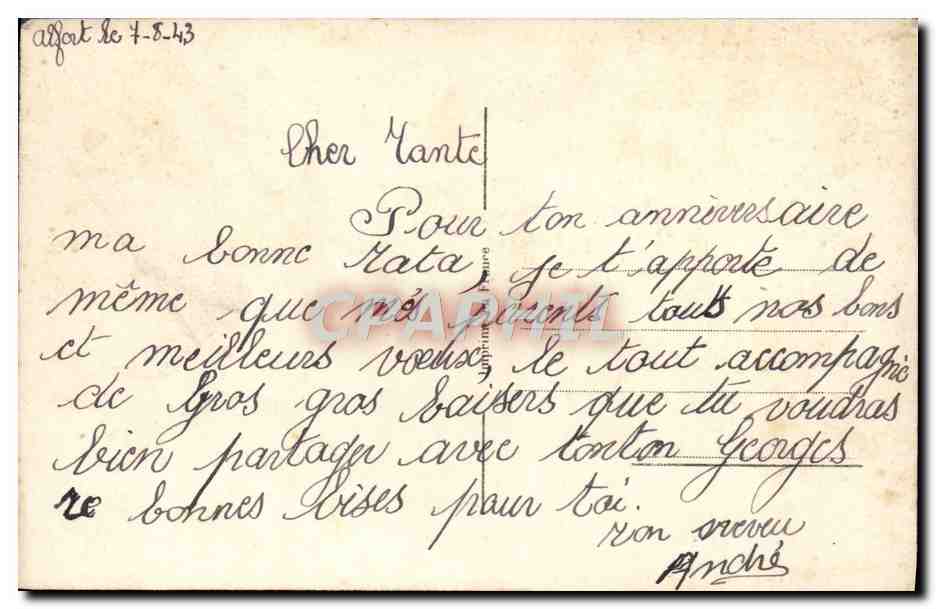 Alfort le 7-8-43
Cher Tante
Pour ton annivèrsaire
ma bonne Tata, je t'apporte de
même que mes parents touts nos bons
et meilleurs vœux, le tout accompagné
de Gros gros baisers que tu voudras
bien partager avec tonton Georges
re bonnes bises pour toi.
Ton neveu
André
Imprimé en France
CPARPHIL